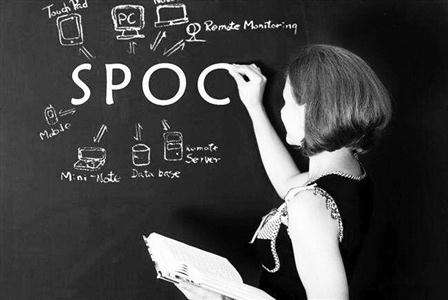 TouchPad
PC
Remote Monitoring
SPOC
Mobile
Mini-Note
Data base
Remote
Server